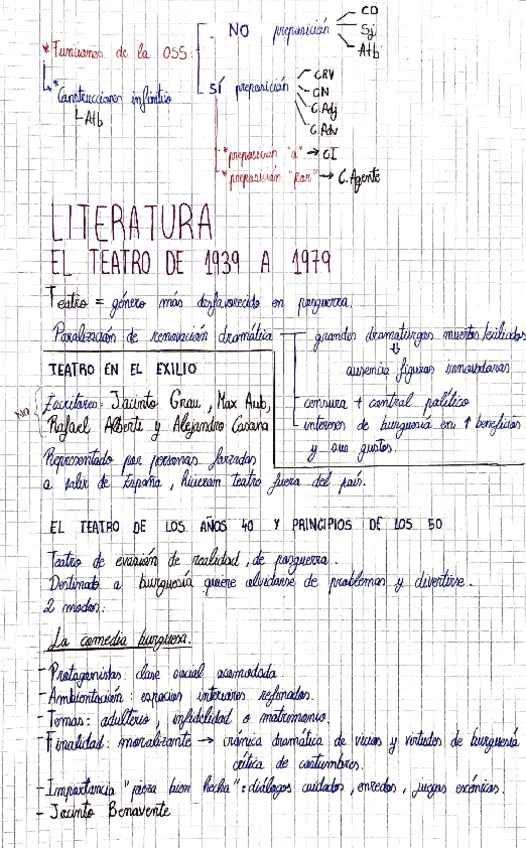 * Funciones de la OSS:
NO preposición
CD
Sj
Atb
* Construcciones infinitivo
Atb
SÍ preposición
CRV
CN
C.Adj
C.Adv
* preposición "a" → CI
* preposición "por" → C.Agente
LITERATURA
EL TEATRO DE 1939 A 1979
Teatro = género más desfavorecido en posguerra.
Paralización de renovación dramática
grandes dramaturgos muertos/exiliados
⇓
ausencia figuras innovadoras
censura + control político
intereses de burguesía en ↑ beneficios
y sus gustos.
TEATRO EN EL EXILIO
No
Escritores: Jacinto Grau, Max Aub,
Rafael Alberti y Alejandro Casona
Representado por personas forzadas
a salir de España, hicieron teatro fuera del país.
EL TEATRO DE LOS AÑOS 40 Y PRINCIPIOS DE LOS 50
Teatro de evasión de realidad, de posguerra.
Destinado a burguesía quiere olvidarse de problemas y divertirse.
2 modos:
La comedia burguesa.
- Protagonistas: clase social acomodada.
- Ambientación: espacios interiores refinados.
- Temas: adulterio, infidelidad o matrimonio.
- Finalidad: moralizante → crónica dramática de vicios y virtudes de burguesía
crítica de costumbres.
- Importancia "pieza bien hecha": diálogos cuidados, enredos, juegos escénicos.
- Jacinto Benavente